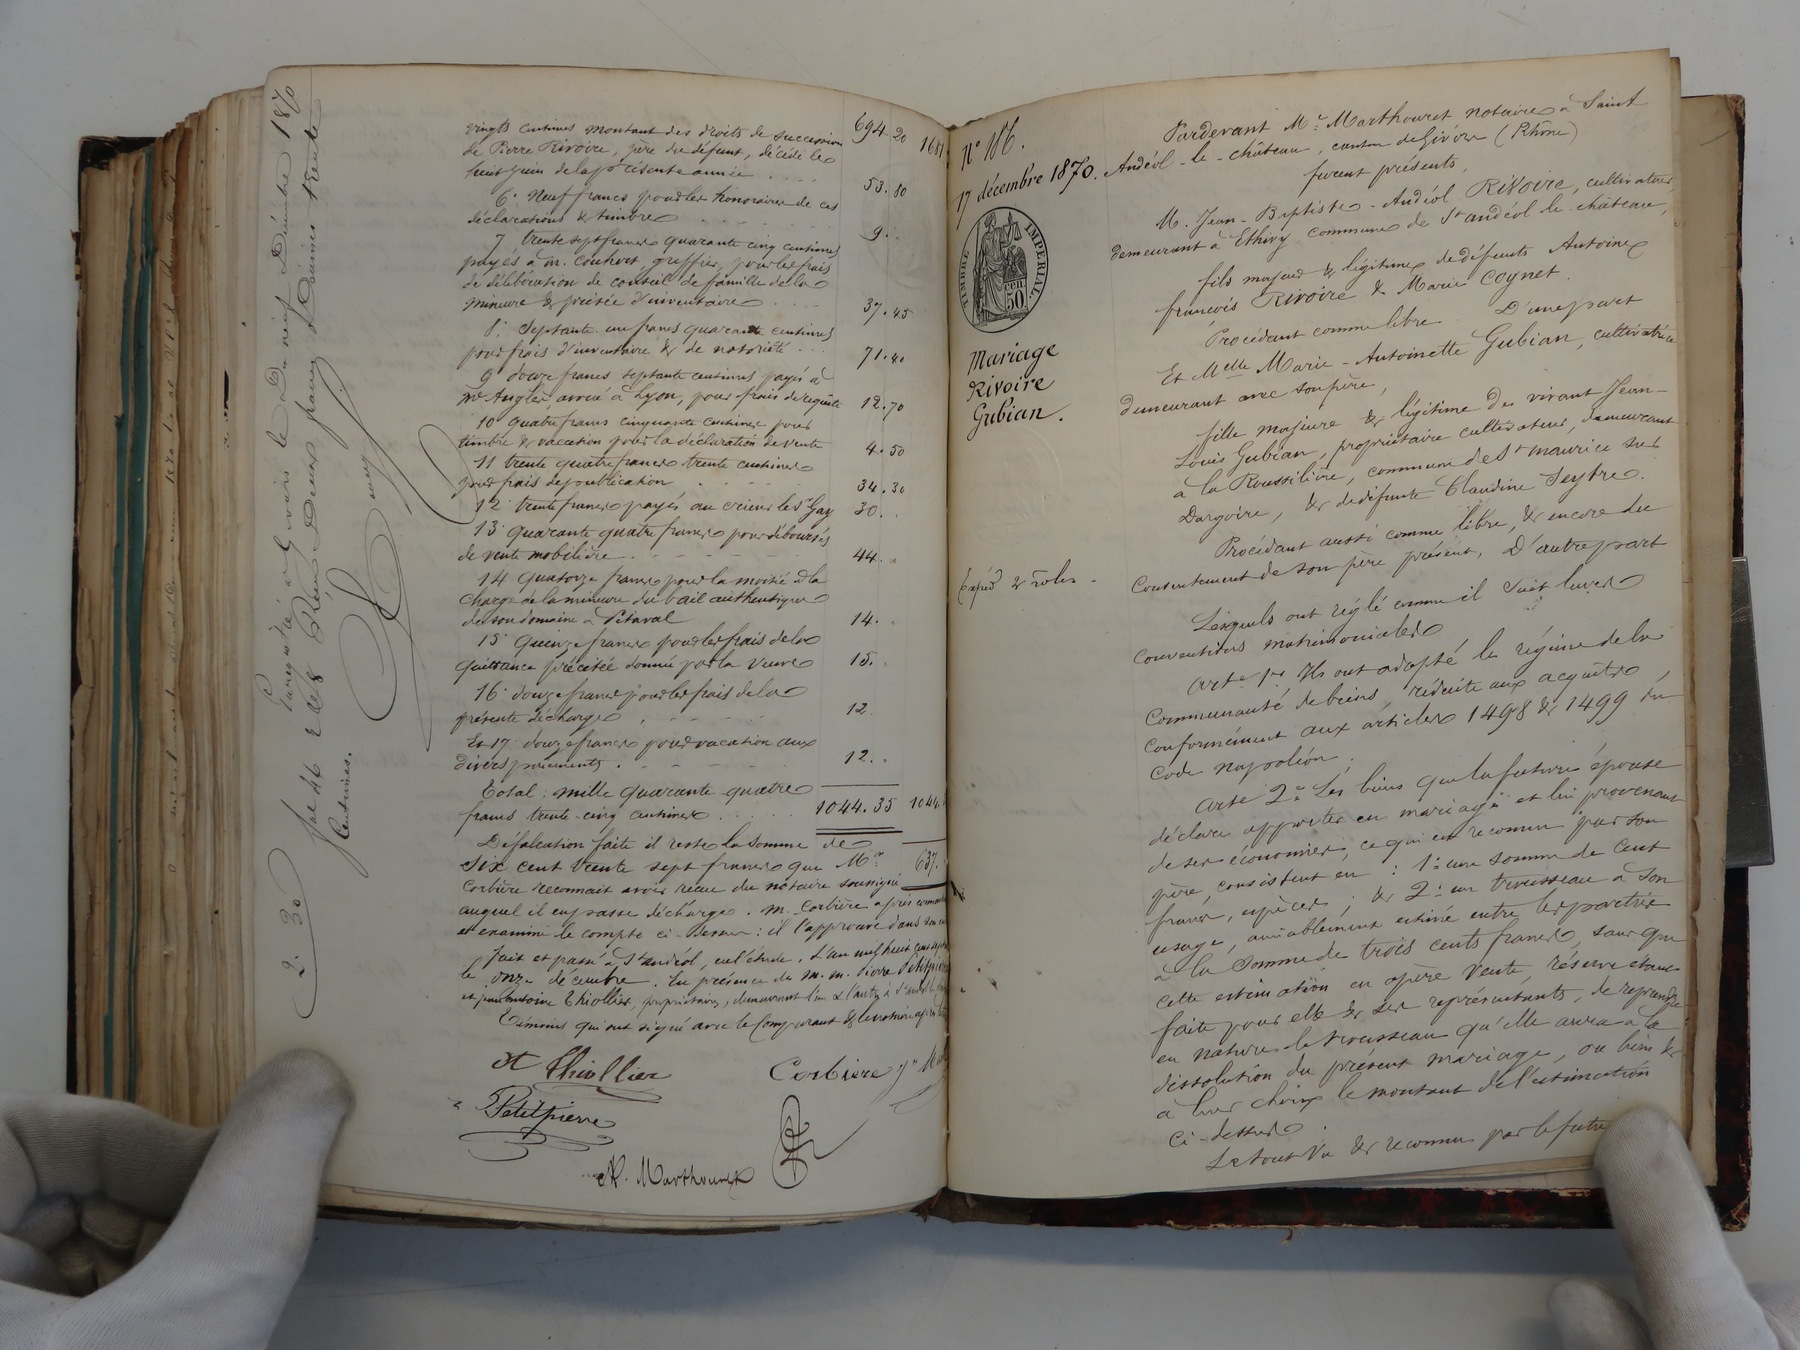 vingts centimes montant des droits de succession 694.20
de Pierre Rivoire, père du défunt, décédé le
huit juin de la présente année 53.80
6° Neuf francs pour les honoraires de ces
déclarations & timbre 9.
7° trente sept francs quarante cinq centimes
payés à m. greffier, pour les frais
de délibération de conseil de famille de la
mineure & prisée d'inventaire 37.45
8° Septante un francs quarante centimes
pour frais d'inventaire & de notoriété 71.40
9° douze francs septante centimes payés à
Me Angles, avoué à Lyon, pour frais de requête 12.70
10 quatre francs cinquante centimes pour
timbre & vacation pour la déclaration de vente 4.50
11 trente quatre francs trente centimes
pour frais de publication 34.30
12° trente francs payés au crieur le Sr Gay 30.
13° quarante quatre francs pour déboursés
de vente mobilière 44.
14 quatorze francs pour la moitié à la
charge de la mineure du bail authentique
de son domaine à Pitaval 14.
15° Quinze francs pour les frais de la
quittance précitée donnée par la veuve 15.
16° douze francs pour les frais de la
présente décharge 12.
Et 17° douze francs pour vacation aux
divers paiements 12.
Total: mille quarante quatre
francs trente cinq centimes 1044.35 1044
Défalcation faite il reste la somme de
Six cent trente sept francs que Mr 637.
Corbière reconnait avoir reçue du notaire soussigné
auquel il en passe décharge. M. Corbière après
et examiné le compte ci-dessus: il l'approuve dans son
fait et passé à St andéol, en l'étude. L'an mil huit cent
le onze décembre. En présence de m.m. Pierre Petitpierre
et Thiollier, propriétaires, demeurant l'un & l'autre à
Témoins qui ont signé avec le Comparant & le notaire après
Thiollier Corbière
Petitpierre
Marthouret
Enregistré à Givors le Dix neuf Décembre 1870
Reçu Deux francs & Décimes trente
centimes.
2.30
N° 186.
17 décembre 1870.
TIMBRE IMPERIAL.
50 cen
Mariage
Rivoire
Gubian.
Expéd 2 rôles
Pardevant Me Marthouret notaire à Saint
Andéol-le-château, canton de Givors (Rhône)
furent présents,
M. Jean-Baptiste-Andéol Rivoire, cultivateur
demeurant à Ethivy commune de St andéol le château,
fils majeur & légitime de défunts Antoine
françois Rivoire & Marie Coynet.
Procédant comme libre D'une part
Et Melle Marie-Antoinette Gubian, cultivatrice
demeurant avec son père,
fille majeure & légitime du vivant Jean-
Louis Gubian, propriétaire cultivateur, demeurant
à la Roussilière, commune de St maurice sur
Dargoire, & de défunte Claudine Seytre.
Procédant aussi comme libre, & encore du
consentement de son père présent, D'autre part
Lesquels ont réglé comme il suit leurs
conventions matrimoniales
Arte 1er Ils ont adopté le régime de la
Communauté de biens, réduite aux acquêts
conformément aux articles 1498 & 1499 du
Code napoléon.
Arte 2e Les biens que la future épouse
déclare apporter en mariage et lui provenant
de ses économies, ce qui est reconnu par son
père, consistent en: 1° une somme de Cent
francs, espèces; & 2° un trousseau à son
usage, amiablement estimé entre les parties
à la somme de trois cents francs, sans que
cette estimation en opère vente, réserve étant
faite pour elle & ses représentants, de reprendre
en nature le trousseau qu'elle aura à la
dissolution du présent mariage, ou bien &
à leur choix le montant de l'estimation
ci-dessus.
Le tout vu & reconnu par le futur